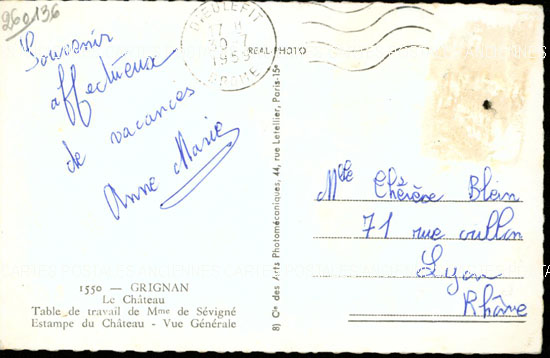 260136
Souvenir
affectueux
de vacances
Anne Marie
DIEULEFIT
DROME
1959
REAL-PHOTO
8) Cie des Arts Photomécaniques, 44, rue Letellier, Paris-15e
Mlle Thérèse Blein
71 rue
Lyon
Rhône
CARTES POSTALES ANCIENNES
1550 — GRIGNAN
Le Château
Table de travail de Mme de Sévigné
Estampe du Château - Vue Générale